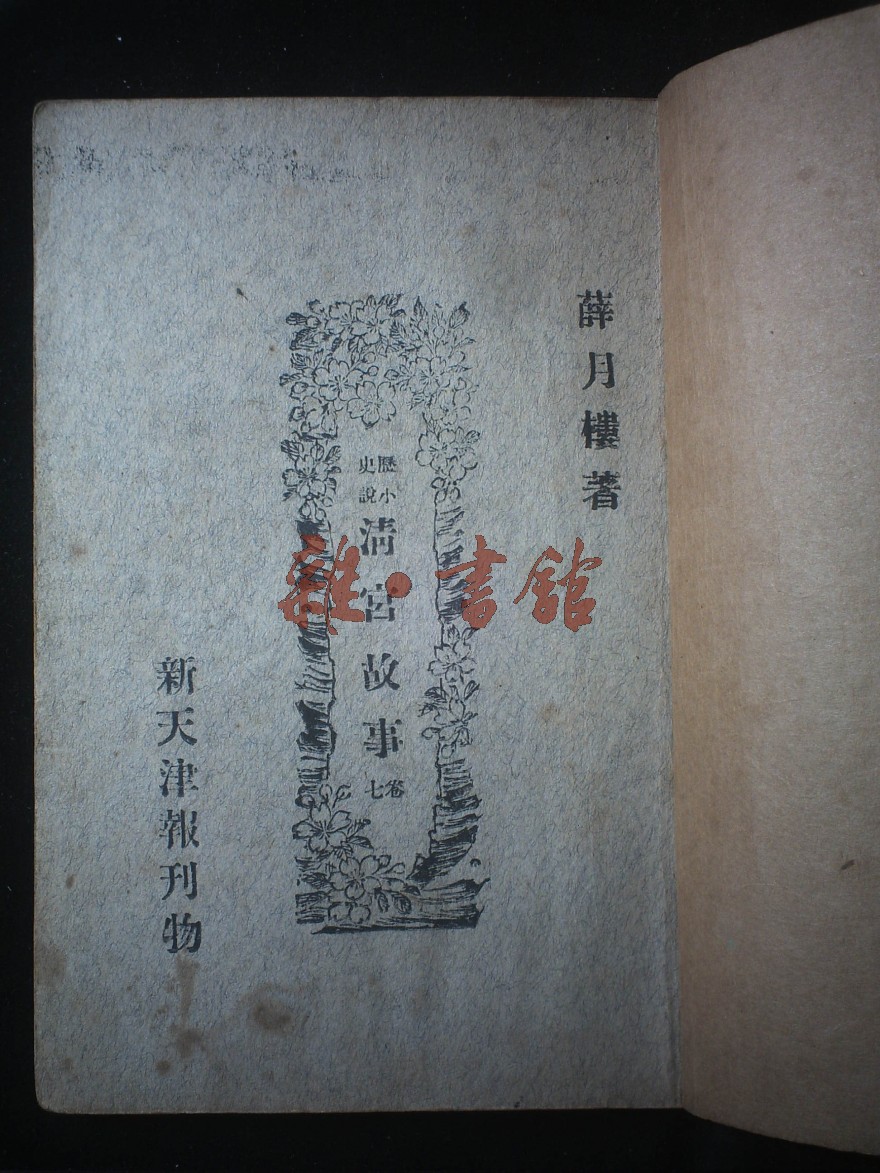 薛月樓著
歷史小說
清宮故事
卷七
新天津報刊物
雜·書館